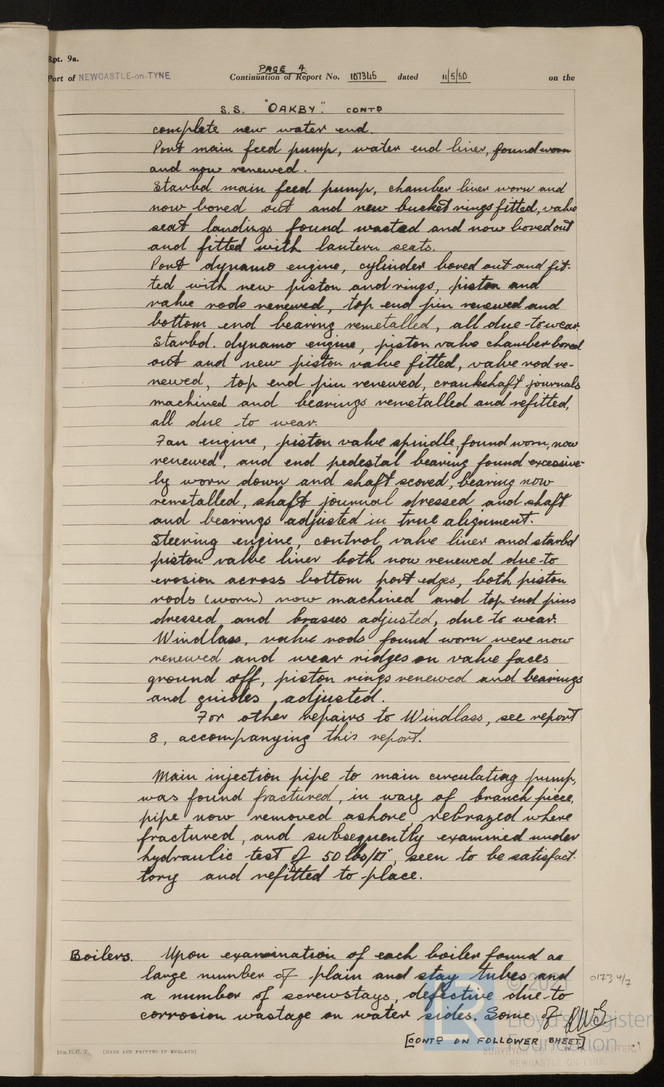 Rpt. 9a.
PAGE 4
Port of NEWCASTLE-on-TYNE Continuation of Report No. 107346 dated 11/5/50 on the
S.S. "OAKBY". CONTD
complete new water end.
Port main feed pump, water end liner, found worn
and now renewed.
Starbd main feed pump, chamber liner worn and
now bored out and new bucket rings fitted, valve
seat landings found wasted and now bored out
and fitted with lantern seats.
Port dynamo engine, cylinder bored out and fit-
ted with new piston and rings, piston and
valve rods renewed, top end pin renewed and
bottom end bearing remetalled, all due to wear.
Starbd. dynamo engine, piston valve chamber bored
out and new piston valve fitted, valve rod re-
newed, top end pin renewed, crankshaft journals
machined and bearings remetalled and refitted,
all due to wear.
Fan engine, piston valve spindle, found worn, now
renewed, and end pedestal bearing found excessive-
ly worn down and shaft scored, bearing now
remetalled, shaft journal dressed and shaft
and bearings adjusted in true alignment.
Steering engine, control valve liner and starbd
piston valve liner both now renewed due to
erosion across bottom port edges, both piston
rods (worn) now machined and top end pins
dressed and brasses adjusted, due to wear.
Windlass, valve rods found worn were now
renewed and wear ridges on valve faces
ground off, piston rings renewed and bearings
and guides adjusted.
For other repairs to Windlass, see report
8, accompanying this report.
Main injection pipe to main circulating pump,
was found fractured, in way of branch piece,
pipe now removed ashore, rebrazed where
fractured, and subsequently examined under
hydraulic test of 50 lbs/□", seen to be satisfac-
tory and refitted to place.
Boilers. Upon examination of each boiler found a
large number of plain and stay tubes and
a number of screwstays, defective due to
corrosion wastage on water sides. Some of
[CONTD ON FOLLOWER SHEET]
0173 4/7
© 2021
Lloyd's Register
Foundation
NEWCASTLE-ON-TYNE
(MADE AND PRINTED IN ENGLAND)